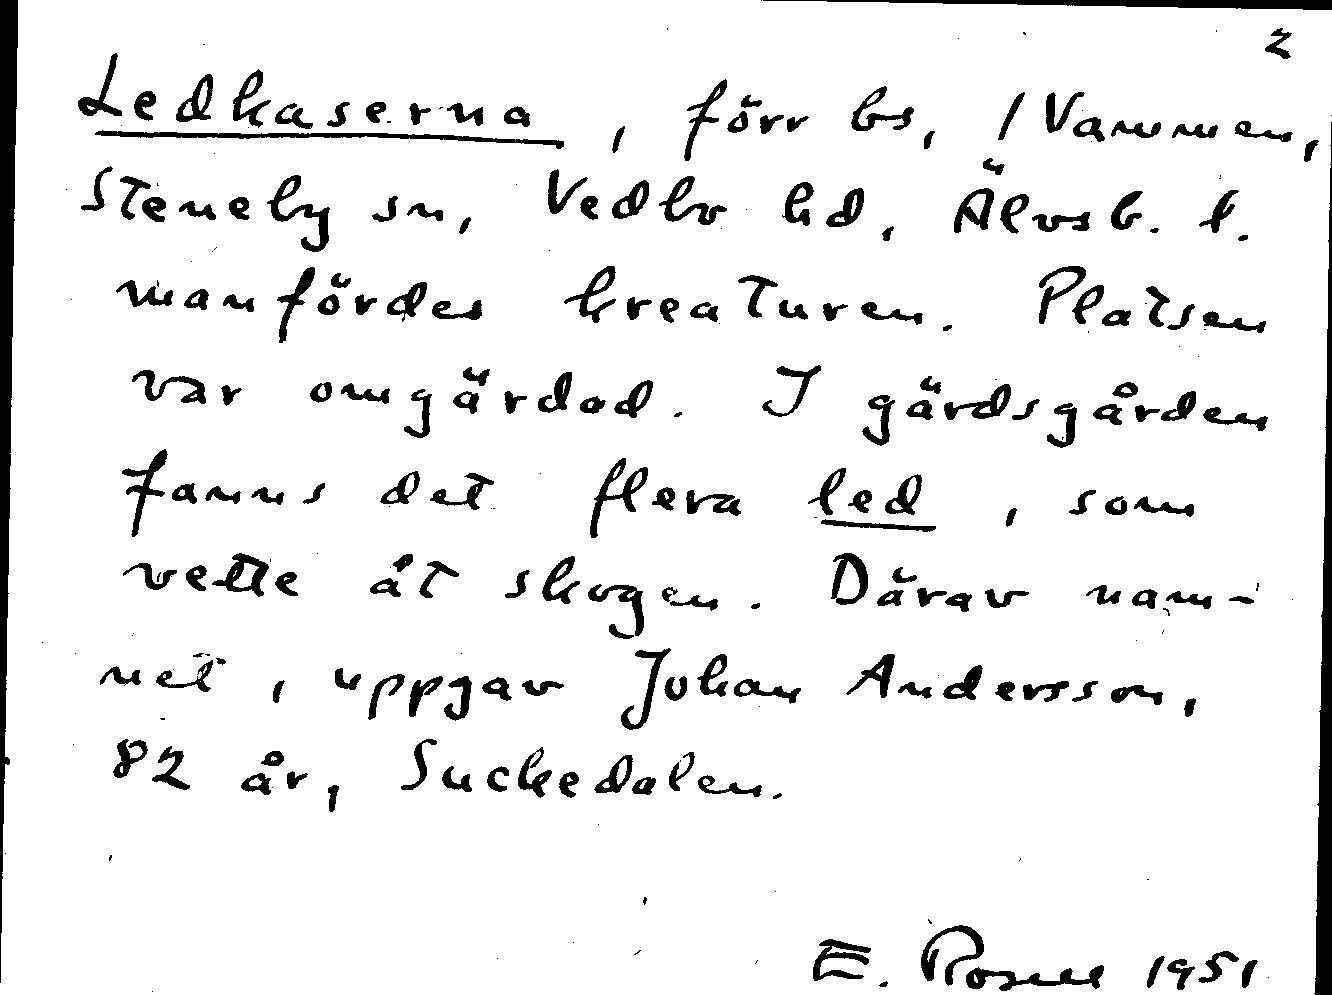 2
Ledkaserna, förr bs, 1 Vammen,
Steneby sn, Vedbo hd, Älvsb. l.
man fördes kreaturen. Platsen
var omgärdad. I gärdsgården
fanns det flera led, som
vette åt skogen. Därav nam-
net, uppgav Johan Andersson,
82 år, Suckedalen.
E. Rosell 1951